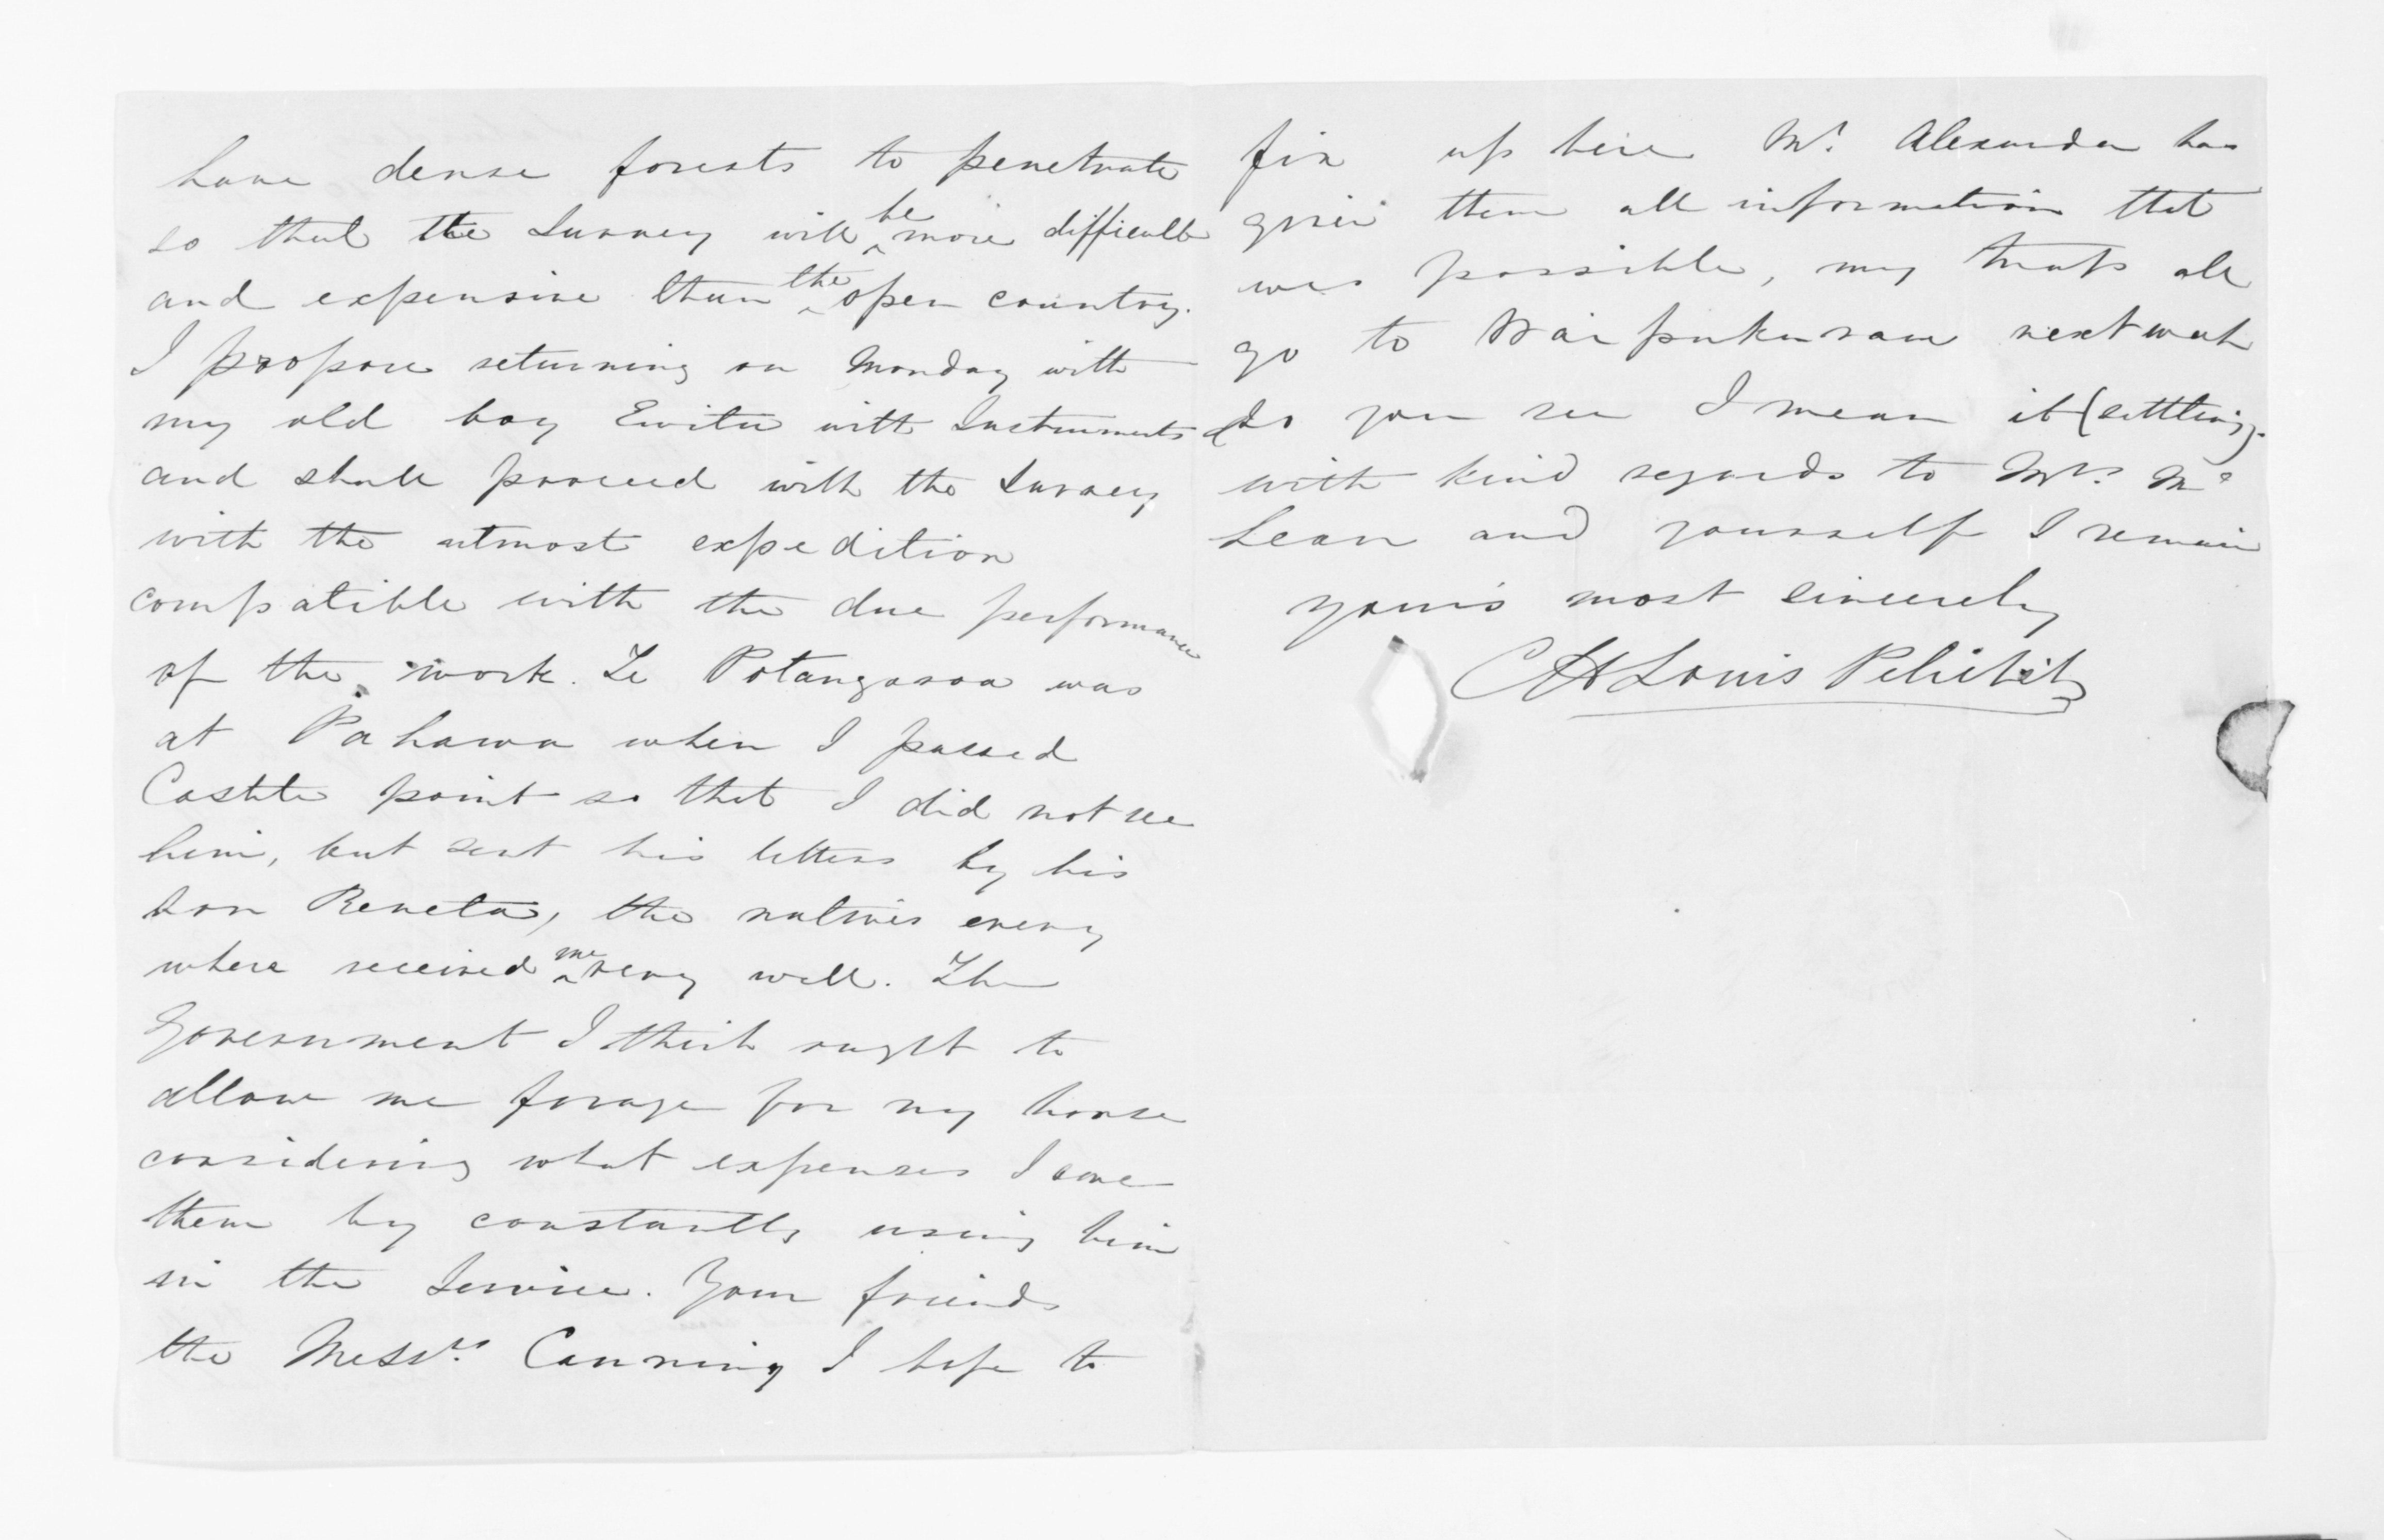 have dense forests to penetrate
so that the Survey will be more difficult
and expensive than the open country.
I propose returning on Monday with
my old boy Ewitu with Instruments
and shall proceed with the Survey
with the utmost expedition
compatible with the due performance
of the work. Te Potangaroa was
at Pahawa when I passed
Castle point so that I did not see
him, but sent his letters by his
son Reneta, the natives every
where received me very well. The
Government I think ought to
allow me forage for my horse
considering what expenses I save
them by constantly using him
in the Service. Your friends
the Messrs. Canning I hope to
fix up here Mr. Alexander has
given them all information that
was possible, my traps all
go to Waipukurau next week
so you see I mean it (settling).
with kind regards to Mrs. Mc
Lean and yourself I remain
yours most sincerely
CH Louis Pelichet